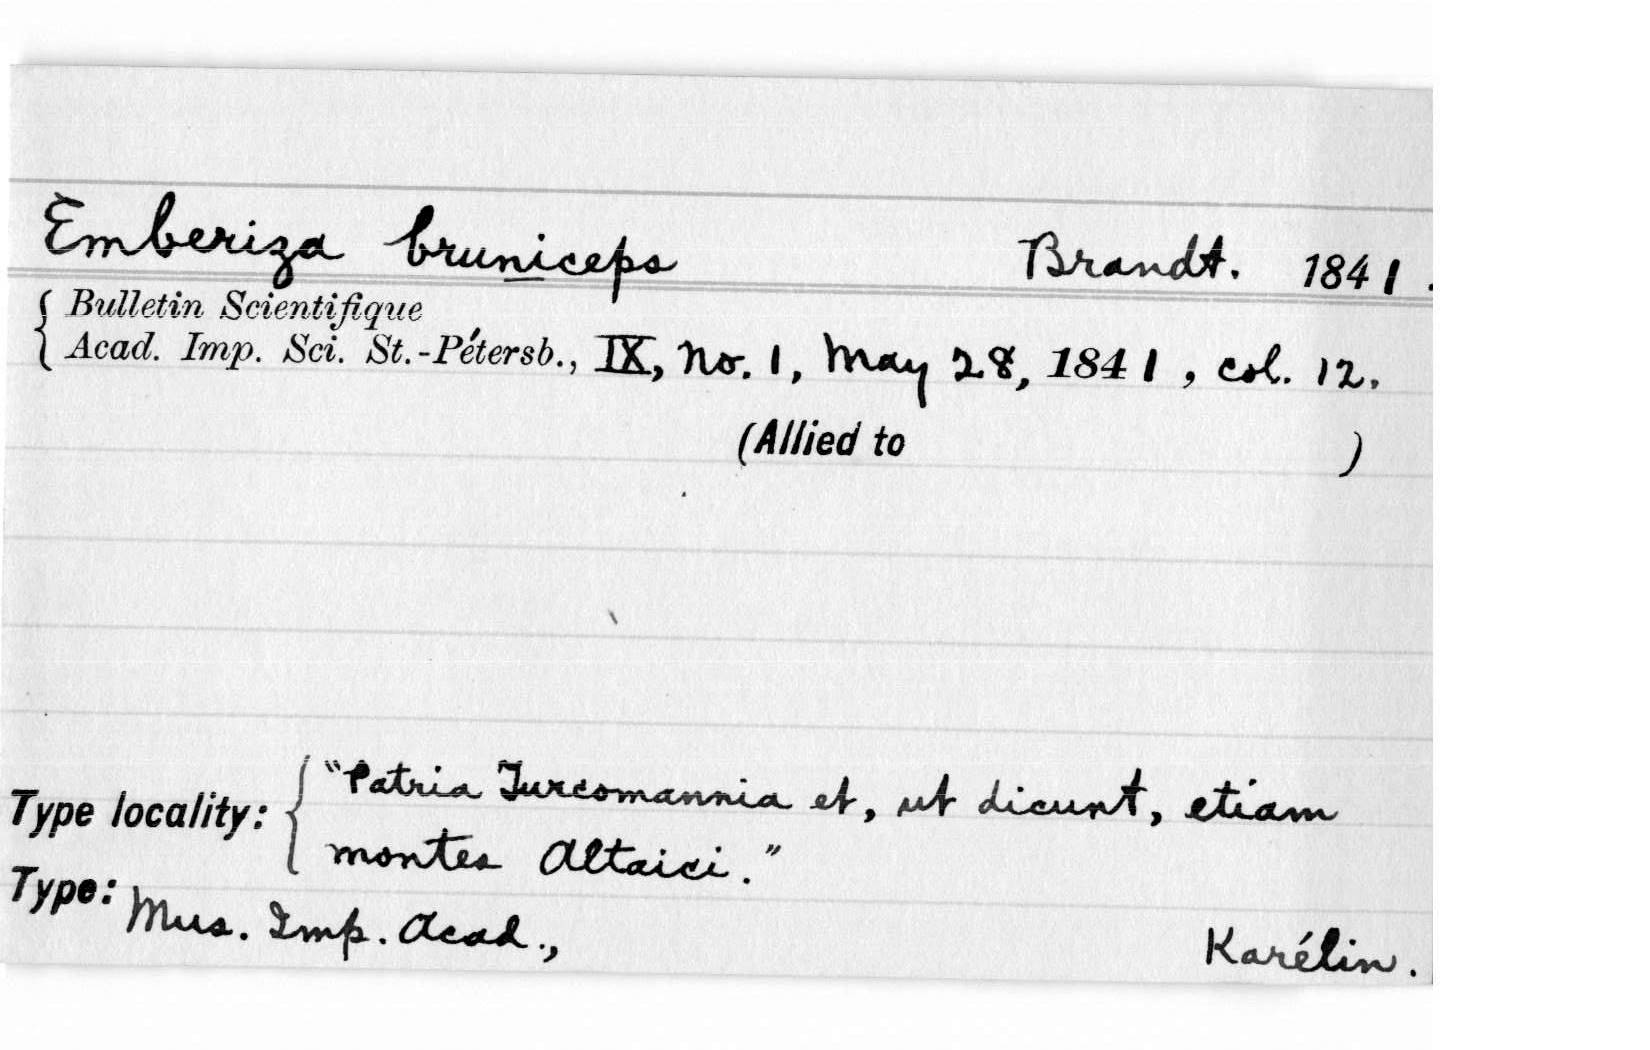 Emberiza bruniceps Brandt. 1841.
Bulletin Scientifique
Acad. Imp. Sci. St.-Pétersb., IX, No. 1, May 28, 1841, col. 12.
(Allied to )
Type locality: "Patria Turcomannia et, ut dicunt, etiam
montes Altaici."
Type: Mus. Imp. Acad., Karélin.